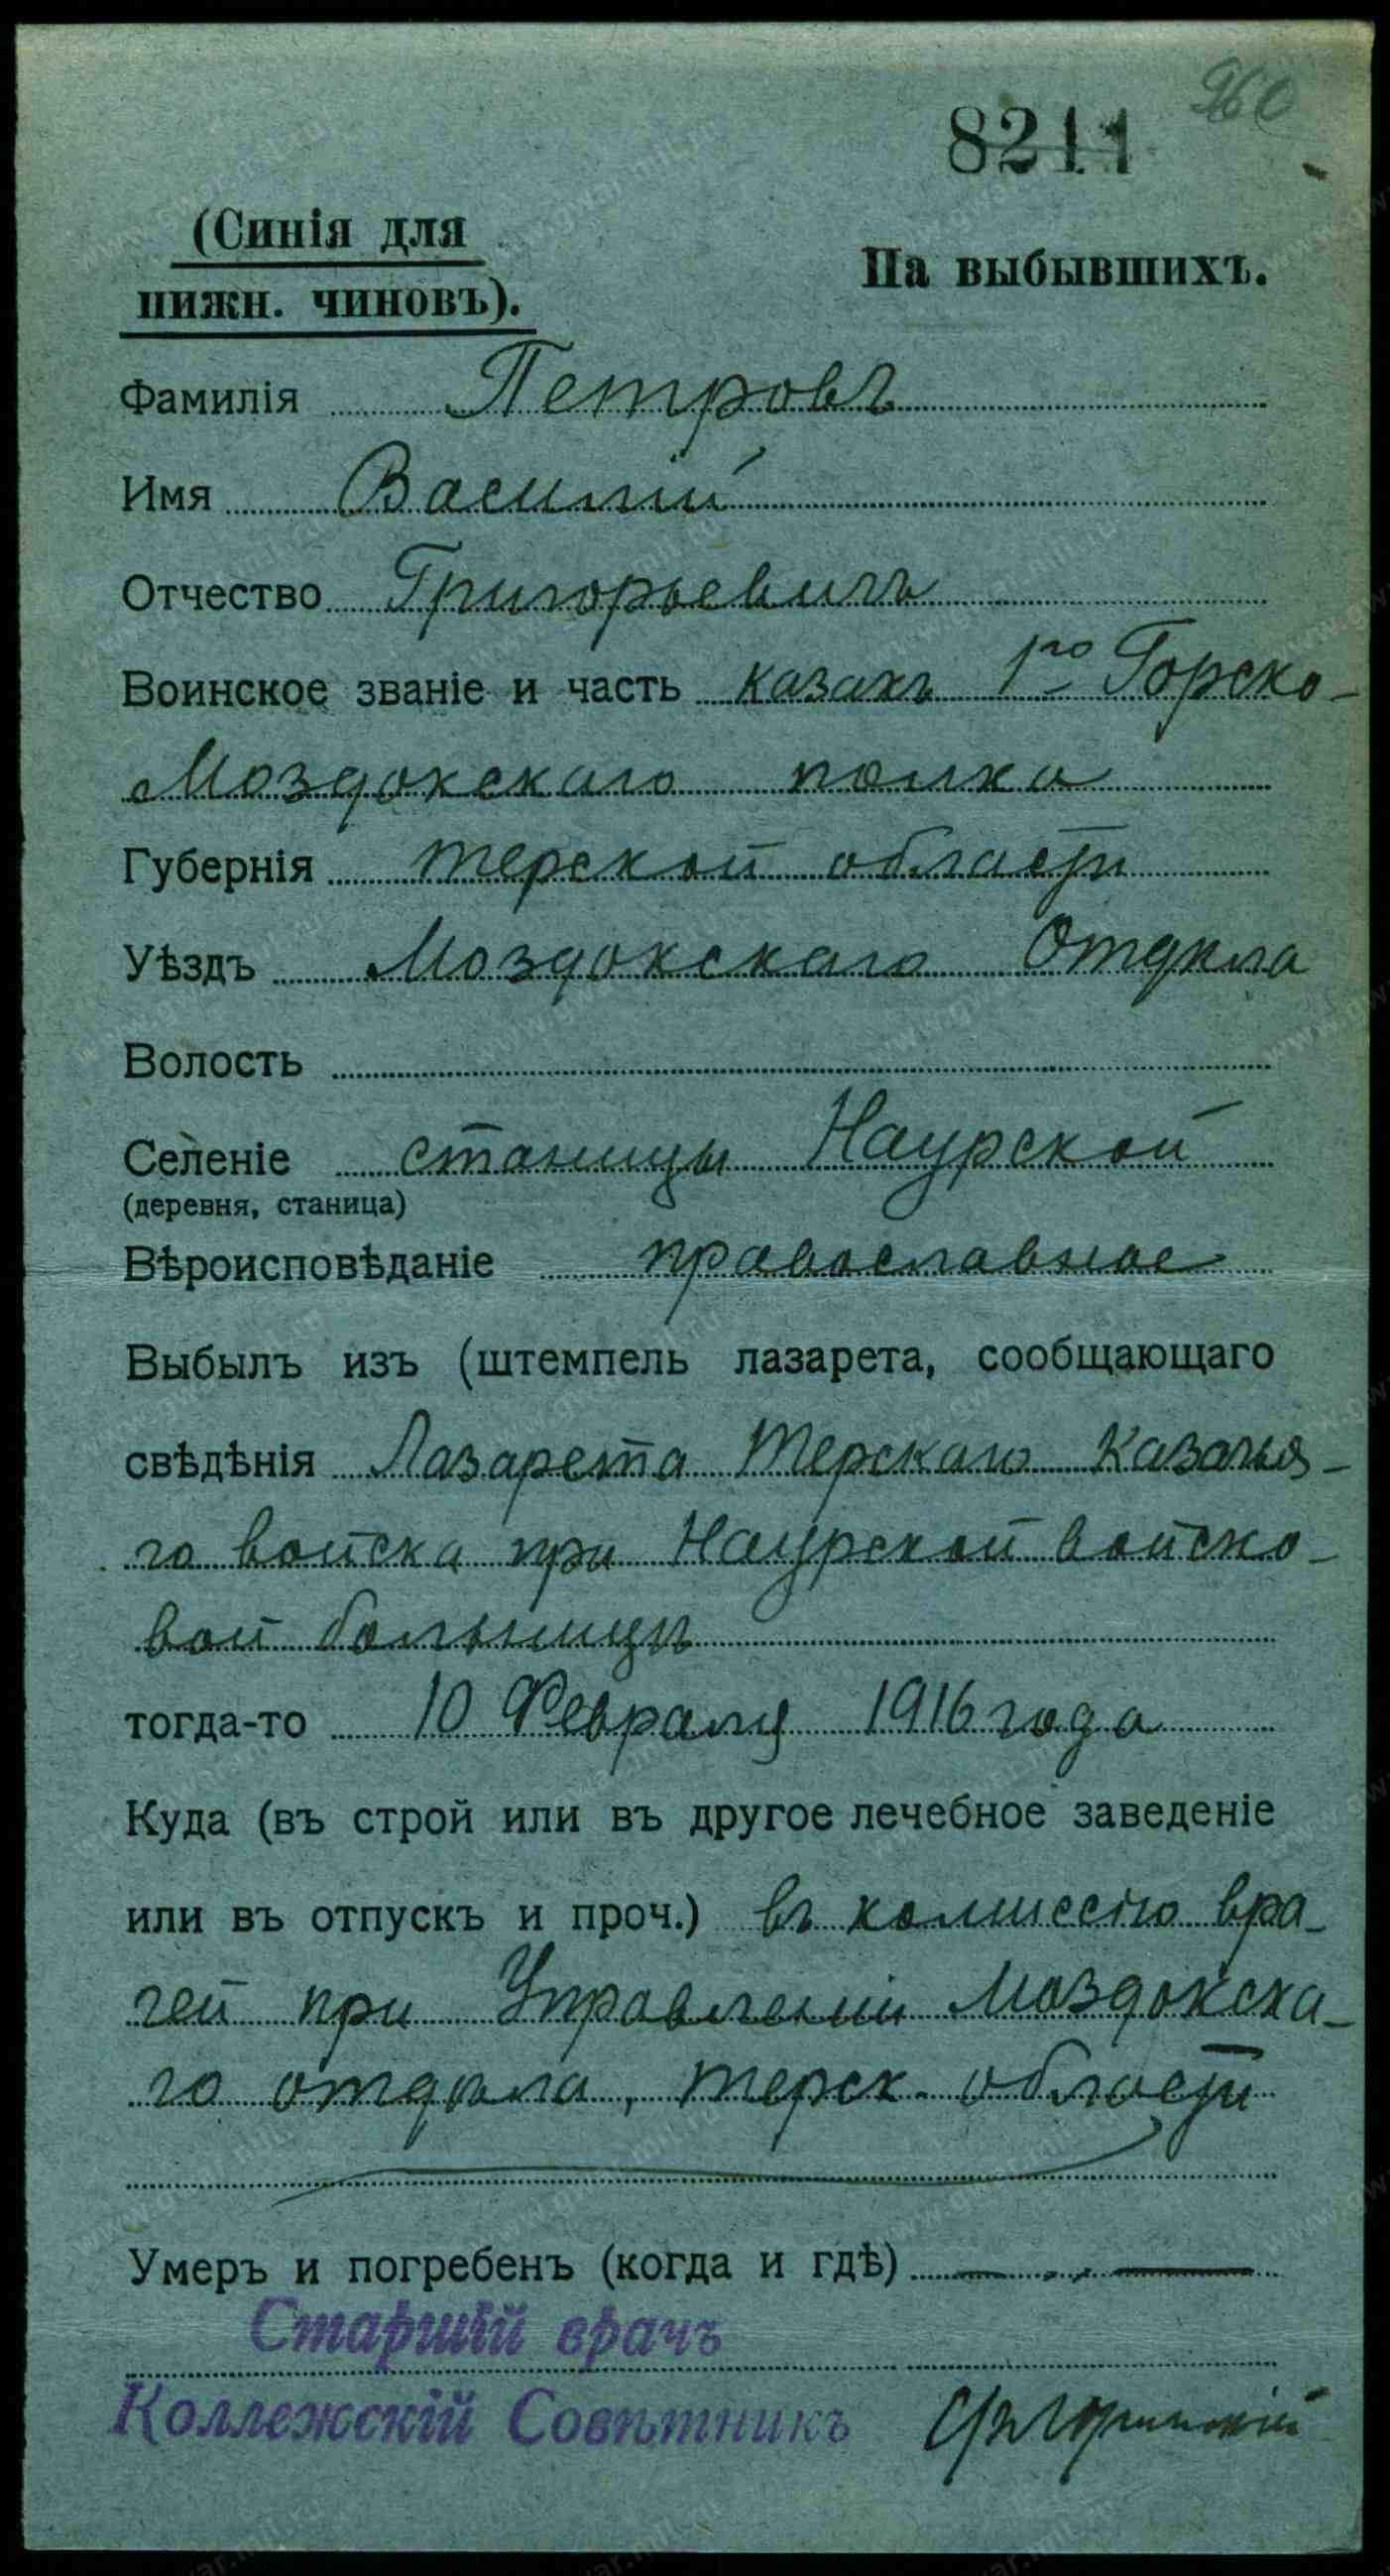 8211
(Синія для
нижн. чиновъ).
На выбывшихъ.
Фамилія Петровъ
Имя Василій
Отчество Григорьевичъ
Воинское званіе и часть казакъ 1го Горско-
Моздокскаго полка
Губернія Терской области
Уѣздъ Моздокскаго Отдѣла
Волость
Селеніе станицы Наурской
(деревня, станица)
Вѣроисповѣданіе православное
Выбылъ изъ (штемпель лазарета, сообщающаго
свѣдѣнія Лазарета Терскаго Казачья-
го войска при Наурской войско-
вой больницѣ
тогда-то 10 Февраля 1916 года
Куда (въ строй или въ другое лечебное заведеніе
или въ отпускъ и проч.) въ комиссію вра-
чей при Управленіи Моздокска-
го отдѣла, Терск. области
Умеръ и погребенъ (когда и гдѣ)
Старшій врачъ
Коллежскій Совѣтникъ